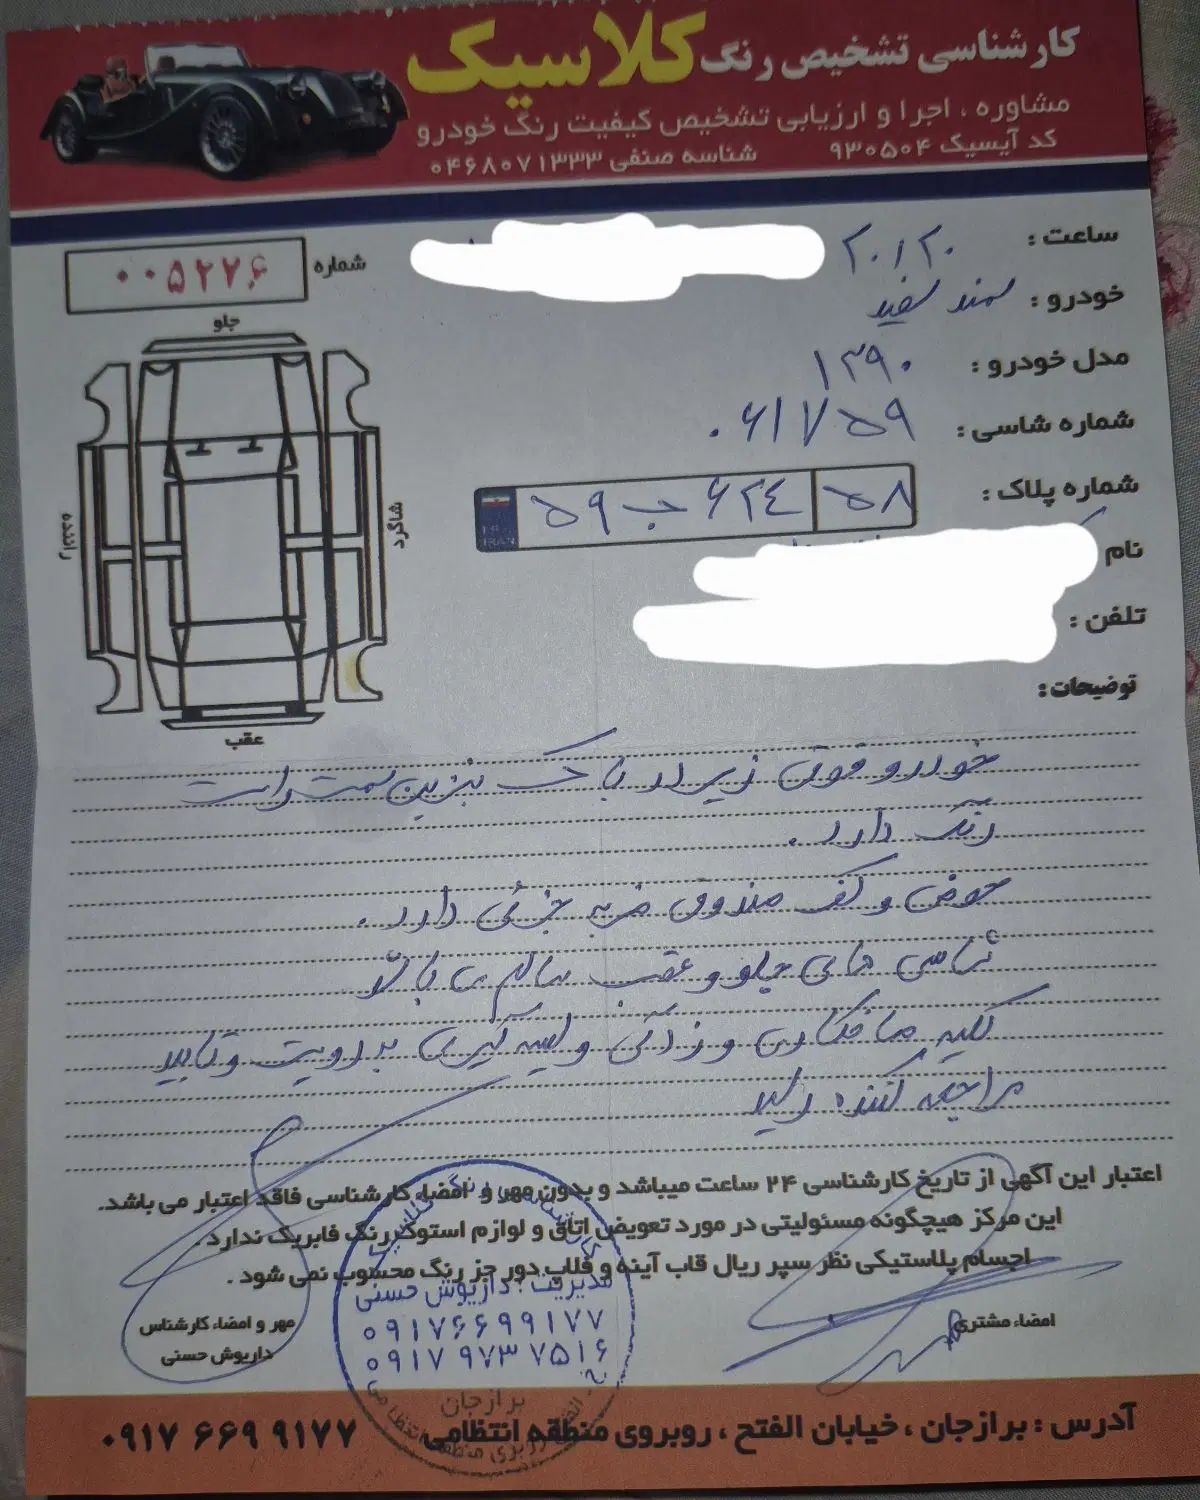 کارشناسی تشخیص رنگ کلاسیک
مشاوره ، اجرا و ارزیابی تشخیص کیفیت رنگ خودرو
کد آیسیک ۹۳۰۵۰۴ شناسه صنفی ۰۴۶۸۰۷۱۳۳۳
ساعت : ۲۰:۲۰
شماره ۰۰۵۲۲۶
خودرو : سمند سفید
مدل خودرو : ۱۳۹۰
شماره شاسی : ۰۶۱۷۵۹
شماره پلاک : ۵۹ ب ۶۲۴ ۵۸
I.R. IRAN
نام
تلفن :
جلو
راننده
شاگرد
عقب
توضیحات :
خودرو فوق زیر درب باک بنزین سمت راست
رنگ دارد .
حوض و کف صندوق ضربه جزئی دارد .
شاسی های جلو و عقب سالم می باشد
کلیه صافکاری و زدگی و لیسه گیری به رویت و تایید
مراجعه کننده رسید
اعتبار این آگهی از تاریخ کارشناسی ۲۴ ساعت میباشد و بدون مهر و امضاء کارشناسی فاقد اعتبار می باشد.
این مرکز هیچگونه مسئولیتی در مورد تعویض اتاق و لوازم استوک رنگ فابریک ندارد.
اجسام پلاستیکی نظر سپر ریال قاب آینه و قلاب دور جز رنگ محسوب نمی شود .
مدیریت : داریوش حسنی
۰۹۱۷۶۶۹۹۱۷۷
۰۹۱۷ ۹۷۳ ۷۵۱۶
برازجان
امضاء مشتری
مهر و امضاء کارشناس
داریوش حسنی
آدرس : برازجان ، خیابان الفتح ، روبروی منطقه انتظامی ۰۹۱۷ ۶۶۹ ۹۱۷۷